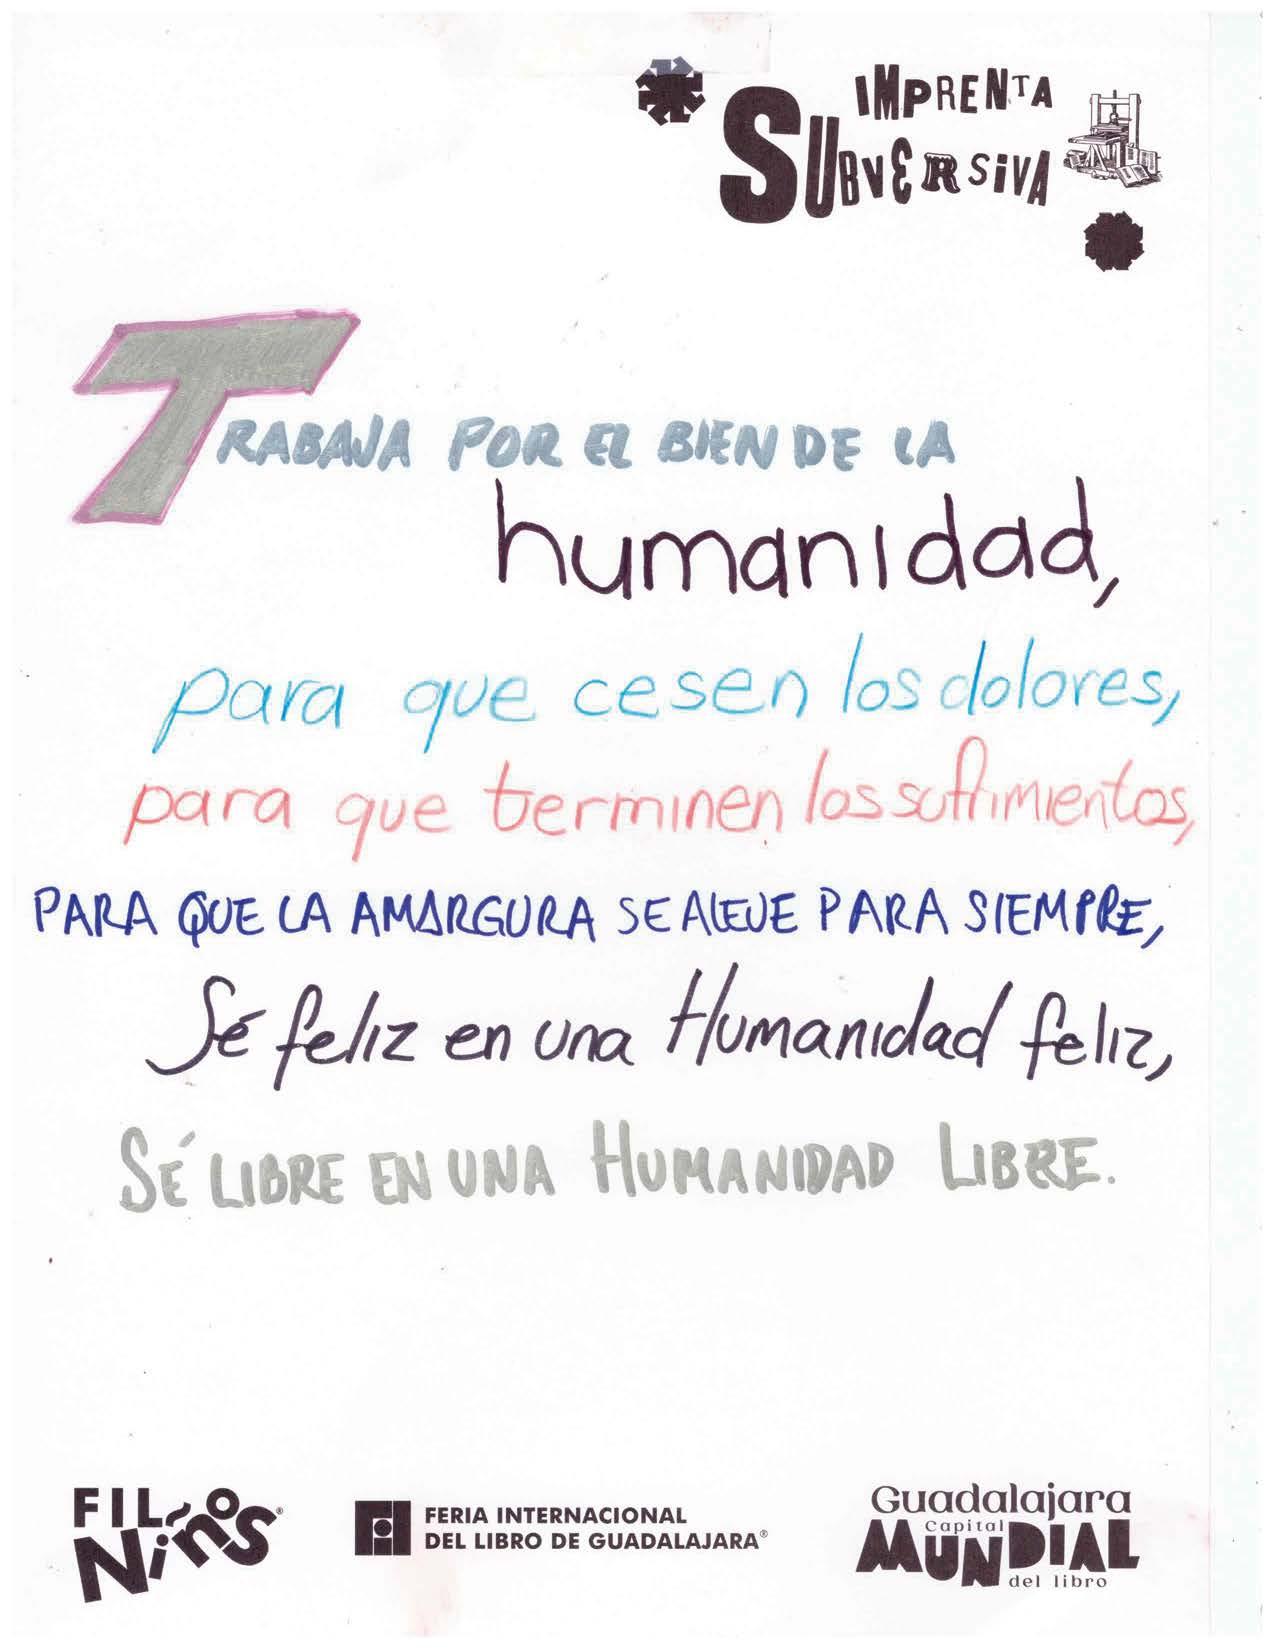 IMPRENTA
SUBVERSIVA
TRABAJA POR EL BIEN DE LA
humanidad,
para que cesen los dolores,
para que terminen los sufrimientos,
PARA QUE LA AMARGURA SE ALEJE PARA SIEMPRE,
Sé feliz en una Humanidad feliz,
SÉ LIBRE EN UNA HUMANIDAD LIBRE.
FIL Niños®
FIL
FERIA INTERNACIONAL
DEL LIBRO DE GUADALAJARA®
Guadalajara
Capital
MUNDIAL
del libro